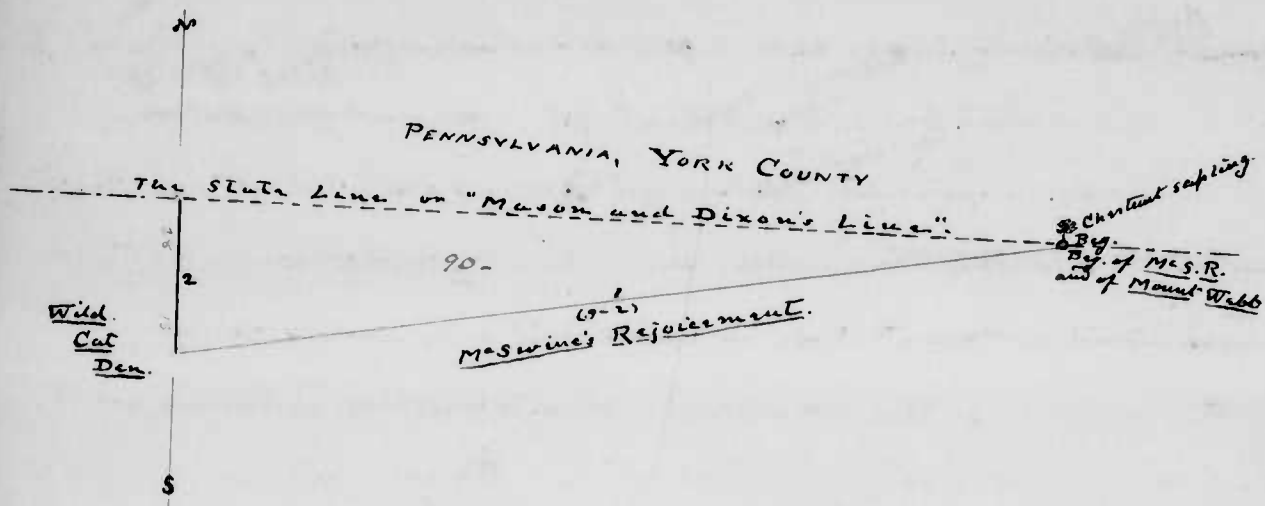 N
PENNSYLVANIA, YORK COUNTY
The State Line or "Mason and Dixon's Line".
Chestnut sapling.
Beg.
Beg. of McS.R.
and of Mount Webb
90-
2
Wild
Cat
Den.
1
(9-2)
McSwine's Rejoicement.
S